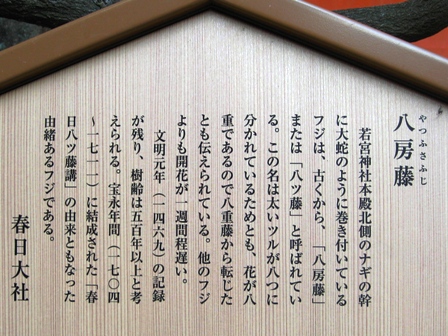 やつふさふじ
八房藤
若宮神社本殿北側のナギの幹
に大蛇のように巻き付いている
フジは、古くから、「八房藤」
または「八ツ藤」と呼ばれてい
る。この名は太いツルが八つに
分かれているためとも、花が八
重であるので八重藤から転じた
とも伝えられている。他のフジ
よりも開花が一週間程遅い。
文明元年(一四六九)の記録
が残り、樹齢は五百年以上と考
えられる。宝永年間(一七〇四
～一七一一)に結成された「春
日八ツ藤講」の由来ともなった
由緒あるフジである。
春日大社